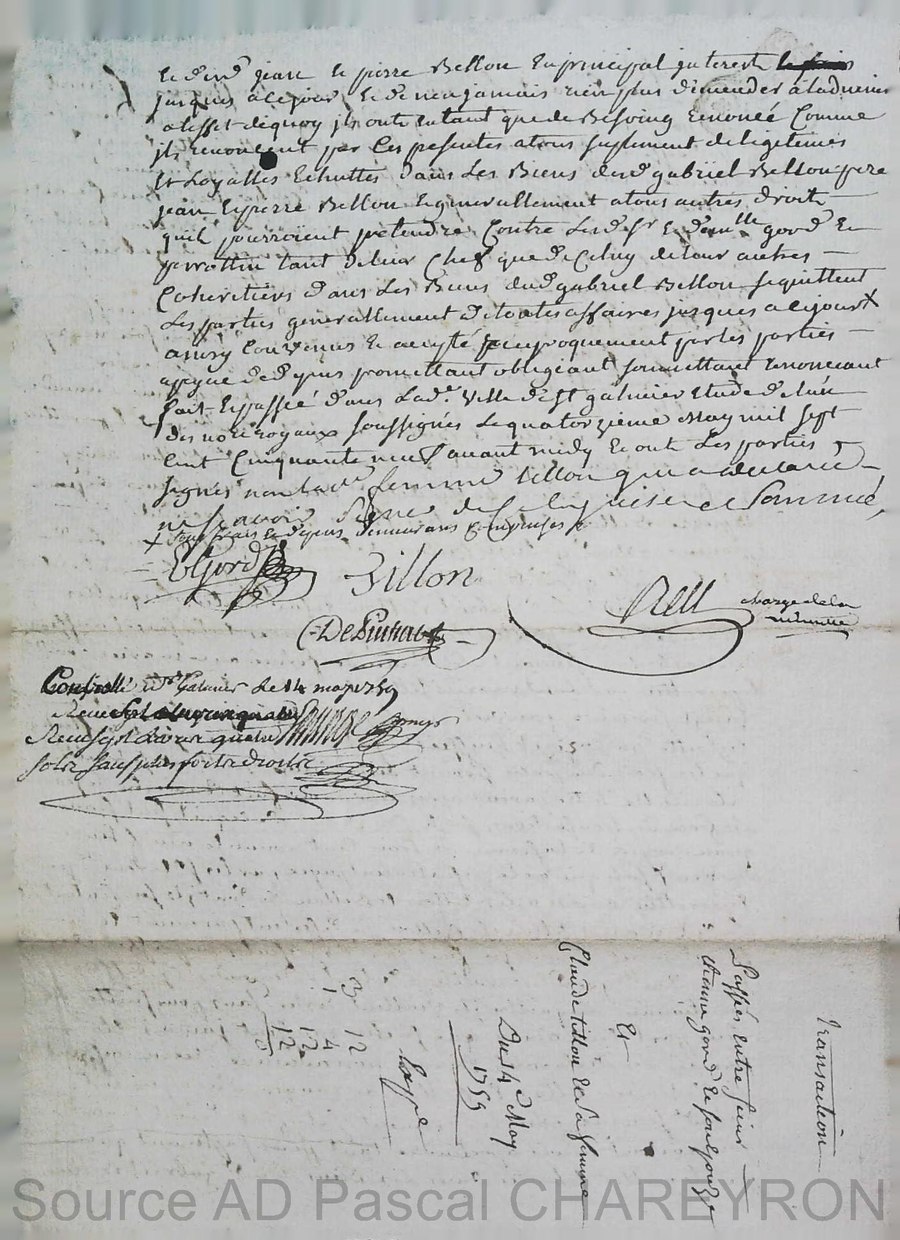 et dud jean et pierre Bellon en principal interest
jusques a ce jour Et de ne jamais rien plus demender a ladvenir
a leffet dequoy ils ont en tant que de Besoing Renoncé Comme
ils renoncent par Ces presentes a tous suplement de legitimes
Et Loyalles Echuttes dans Les Biens dud gabriel Bellon pere
jean Et pierre Bellon Et generallement a tous autres droit
quils pourroient pretendre Contre Lesd Sr Et demlle gord Et
perrottin tant de leur Chef que de Celuy de leur autres
Coheretiers dans Les Biens dud gabriel Bellon se quittent
Les parties generallement de toutes affaires jusques a ce jour X
ainsy Convenus Et accepté reciproquement par les parties
a peyne de d promettant obligeant soumettant Renonceant
fait Et passée dans Lad. Ville de St galmier Etude de Lun
des no.res royaux soussignés Le quatorzieme May mil sept
Cent Cinquante neuf avant midy Et ont Les parties
signés non lad. femme tillon qui a declaré
ne scavoir signe de ce Enquise et Sommée,
X tous frais et depens demeurans Compensés
Gord
Tillon
Rell
charge de la
minutte
Controllé a St Galmier Le 14 may 1759
Receu Sept Livres quatre
solz sauf plus forts droits
Transaction
Passés entre sieur
gord Et son Epouze
Et
Claude tillon Et Sa femme
Du 14e May
1759
Expe
3 12
1 4
12
12
0
Source AD Pascal CHAREYRON